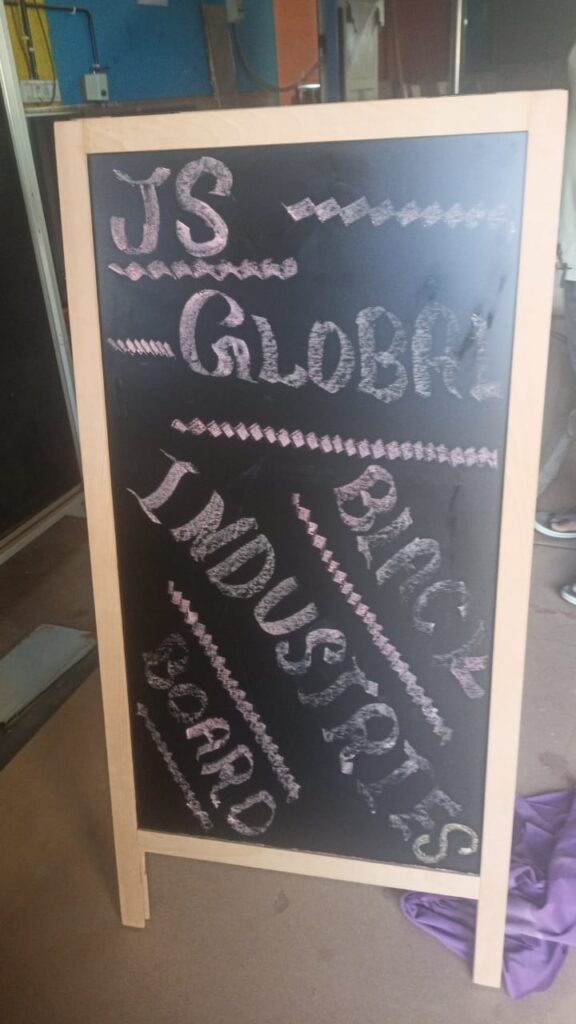 JS
GLOBAL
INDUSTRIES
BLACK
BOARD